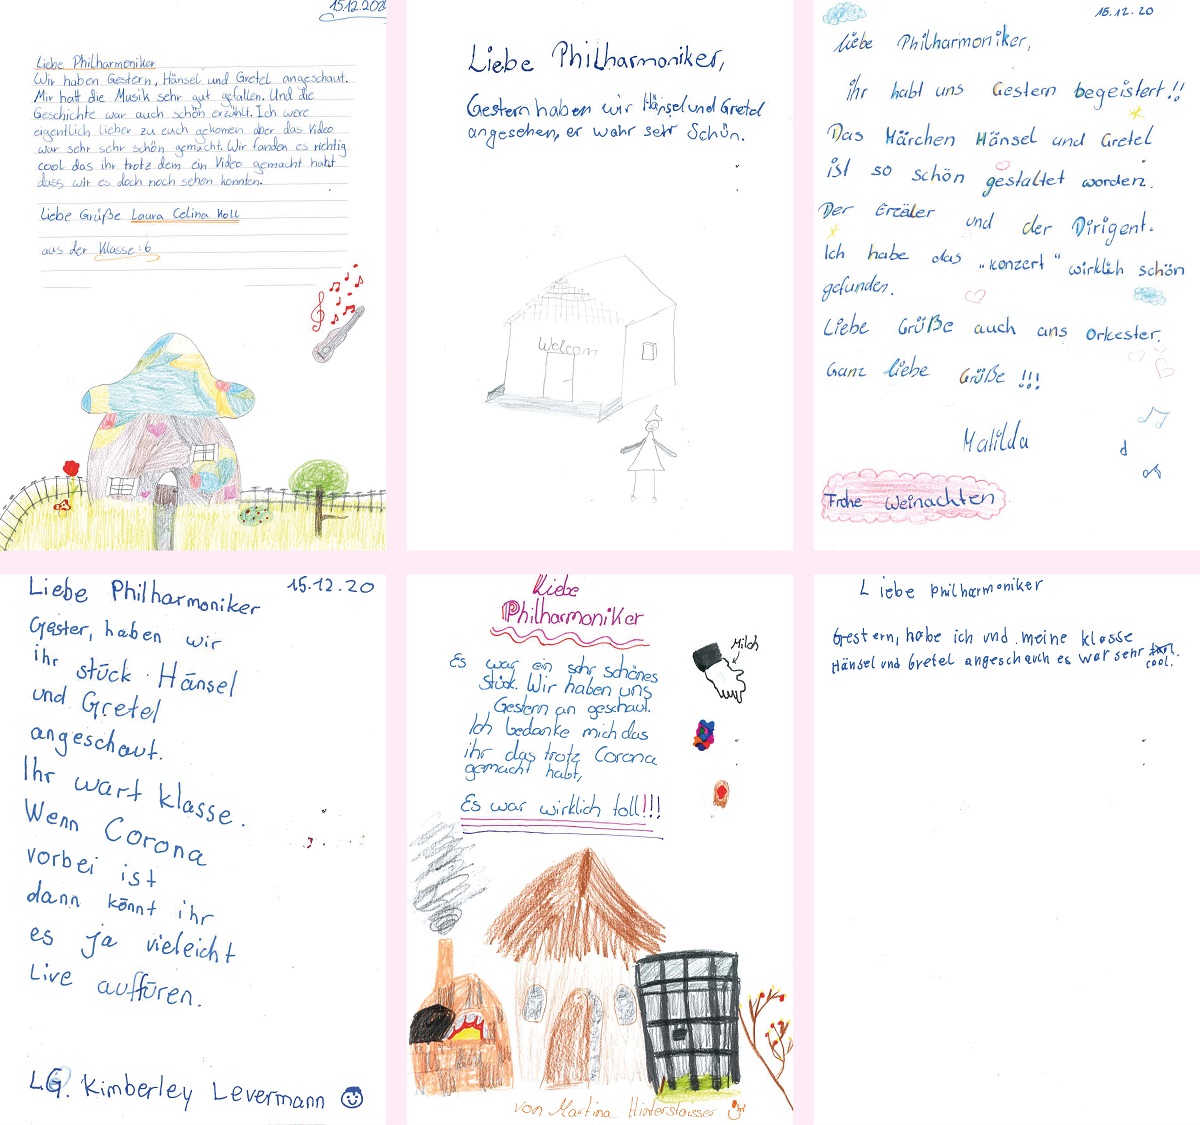 15.12.2020
Liebe Philharmoniker
Wir haben Gestern, Hänsel und Gretel angeschaut.
Mir hatt die Musik sehr gut gefallen. Und die
Geschichte war auch schön erzählt. Ich were
eigentlich lieber zu euch gekomen aber das Video
war sehr sehr schön gemacht. Wir fanden es richtig
cool das ihr trotz dem ein Video gemacht habt
dass wir es doch noch sehen konnten.
Liebe Grüße Laura Celina Noll
aus der Klasse: 6
Liebe Philharmoniker,
Gestern haben wir Hänsel und Gretel
angesehen, er wahr sehr Schön.
Welcom
15.12.20
Liebe Philharmoniker,
ihr habt uns Gestern begeistert!!
Das Märchen Hänsel und Gretel
ist so schön gestaltet worden.
Der Erzäler und der Dirigent.
Ich habe das „Konzert" wirklich schön
gefunden.
Liebe Grüße auch ans Orkester.
Ganz liebe Grüße !!!
Matilda
Frohe Weinachten
15.12.20
Liebe Philharmoniker
Gester, haben wir
ihr stück Hänsel
und Gretel
angeschaut.
Ihr wart klasse.
Wenn Corona
vorbei ist
dann könnt ihr
es ja vieleicht
Live auffüren.
LG. Kimberley Levermann
Liebe
Philharmoniker
Milch
Es war ein sehr schönes
Stück. Wir haben uns
Gestern an geschaut.
Ich bedanke mich das
ihr das trotz Corona
gemacht habt,
Es war wirklich toll!!!
von Martina Hinterstoisser
Liebe philharmoniker
Gestern, habe ich und meine klasse
Hänsel und Gretel angeschauch es war sehr
cool.